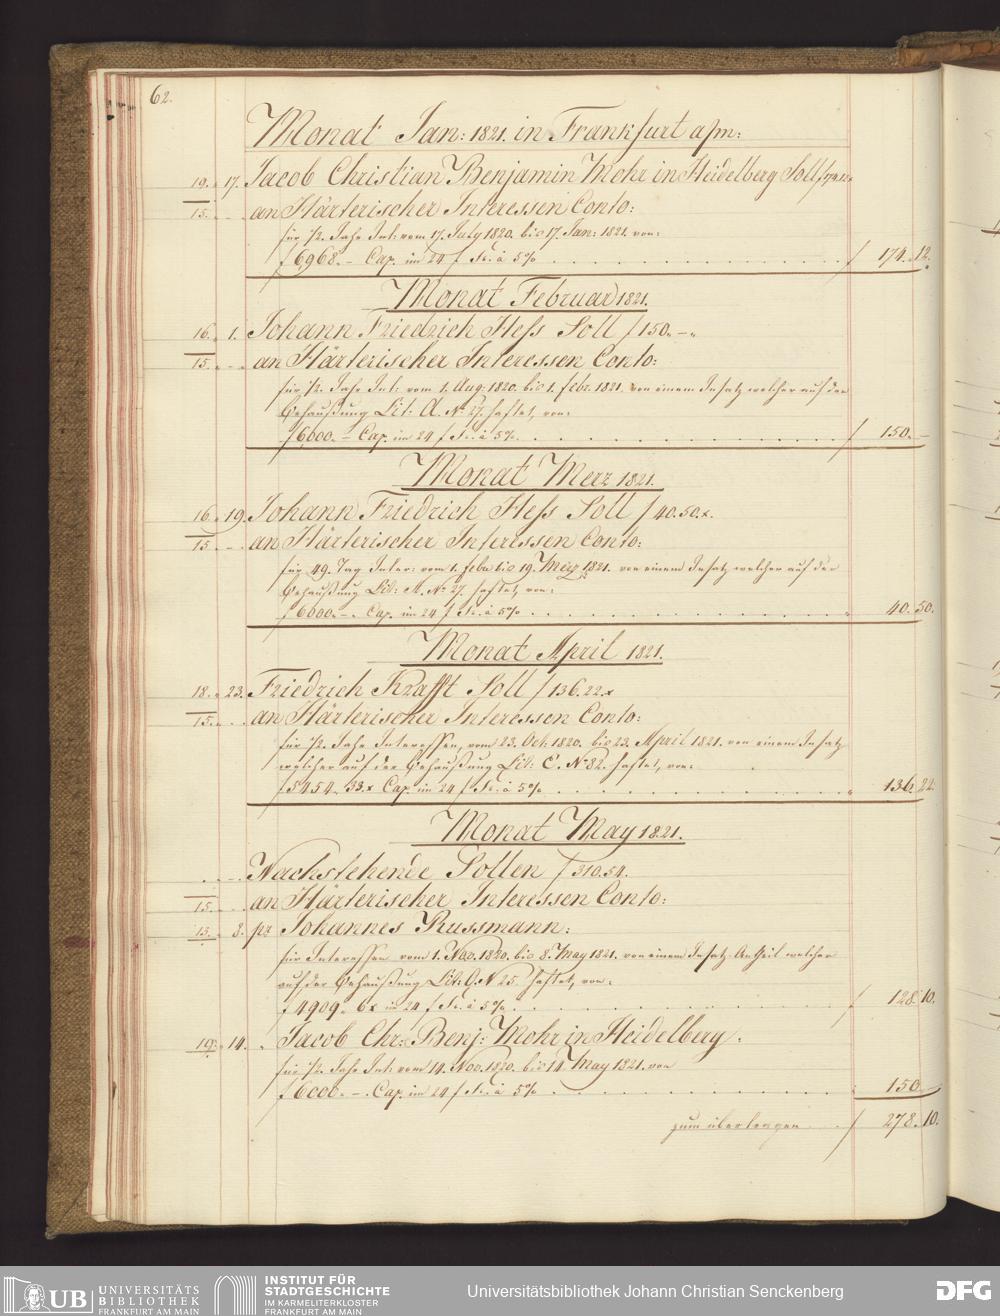 62.
Monat Jan: 1821. in Frankfurt a/m:
19. 17. Jacob Christian Benjamin Mohr in Heidelberg Soll f 174.12.x
15. an Härterischer Interessen Conto:
für 1/2. Jahr Int: vom 17. July 1820. bis 17. Jan: 1821. von:
f 6968. – Cap. im 24 f Fs. à 5% f 174. 12.
Monat Februar 1821.
16. 1. Johann Friedrich Hess Soll f 150. –.
15. an Härterischer Interessen Conto:
für 1/2. Jahr Int: vom 1. Aug: 1820. bis 1. febr. 1821. von einem Insatz welcher auf der
Behaußung Lit: A. No. 27. haftet, von:
f 6000. – Cap. im 24 f Fs. à 5%. f 150. –
Monat Merz 1821.
16. 19. Johann Friedrich Hess Soll f 40.50.x.
15. an Härterischer Interessen Conto:
für 49. Tag Inter: vom 1. febr. bis 19. Merz 1821. von einem Insatz welcher auf der
Behaußung Lit: A. No. 27. haftet, von:
f 6000. –. Cap. im 24 f Fs. à 5% 40. 50.
Monat April 1821.
18. 23. Friedrich Krafft Soll f 136.22.x
15. an Härterischer Interessen Conto:
für 1/2. Jahr Interessen, vom 23. Oct. 1820. bis 23. April 1821. von einem Insatz
welcher auf der Behaußung Lit: C. No. 82. haftet, von:
f 5454. 33.x Cap. im 24 f Fs. à 5% 136. 22.
Monat May 1821.
Nachstehende Sollen f 310.54.
15. an Härterischer Interessen Conto:
13. 8. pr Johannes Russmann:
für Interessen vom 1. Nov. 1820. bis 8. May 1821. von einem Insatz-Antheil welcher
auf der Behaußung Lit: G. N 25. haftet, von:
f 4909. 6x im 24 f Fs. à 5%. f 128. 10.
19. 14. Jacob Chr: Benj: Mohr in Heidelberg.
für 1/2. Jahr Int: vom 14. Nov. 1820. bis 14. May 1821. von
f 6000. –. Cap. im 24 f Fs. à 5% 150. –
zum übertragen f 278. 10.
UB UNIVERSITÄTS
BIBLIOTHEK
FRANKFURT AM MAIN
INSTITUT FÜR
STADTGESCHICHTE
IM KARMELITERKLOSTER
FRANKFURT AM MAIN
Universitätsbibliothek Johann Christian Senckenberg
DFG